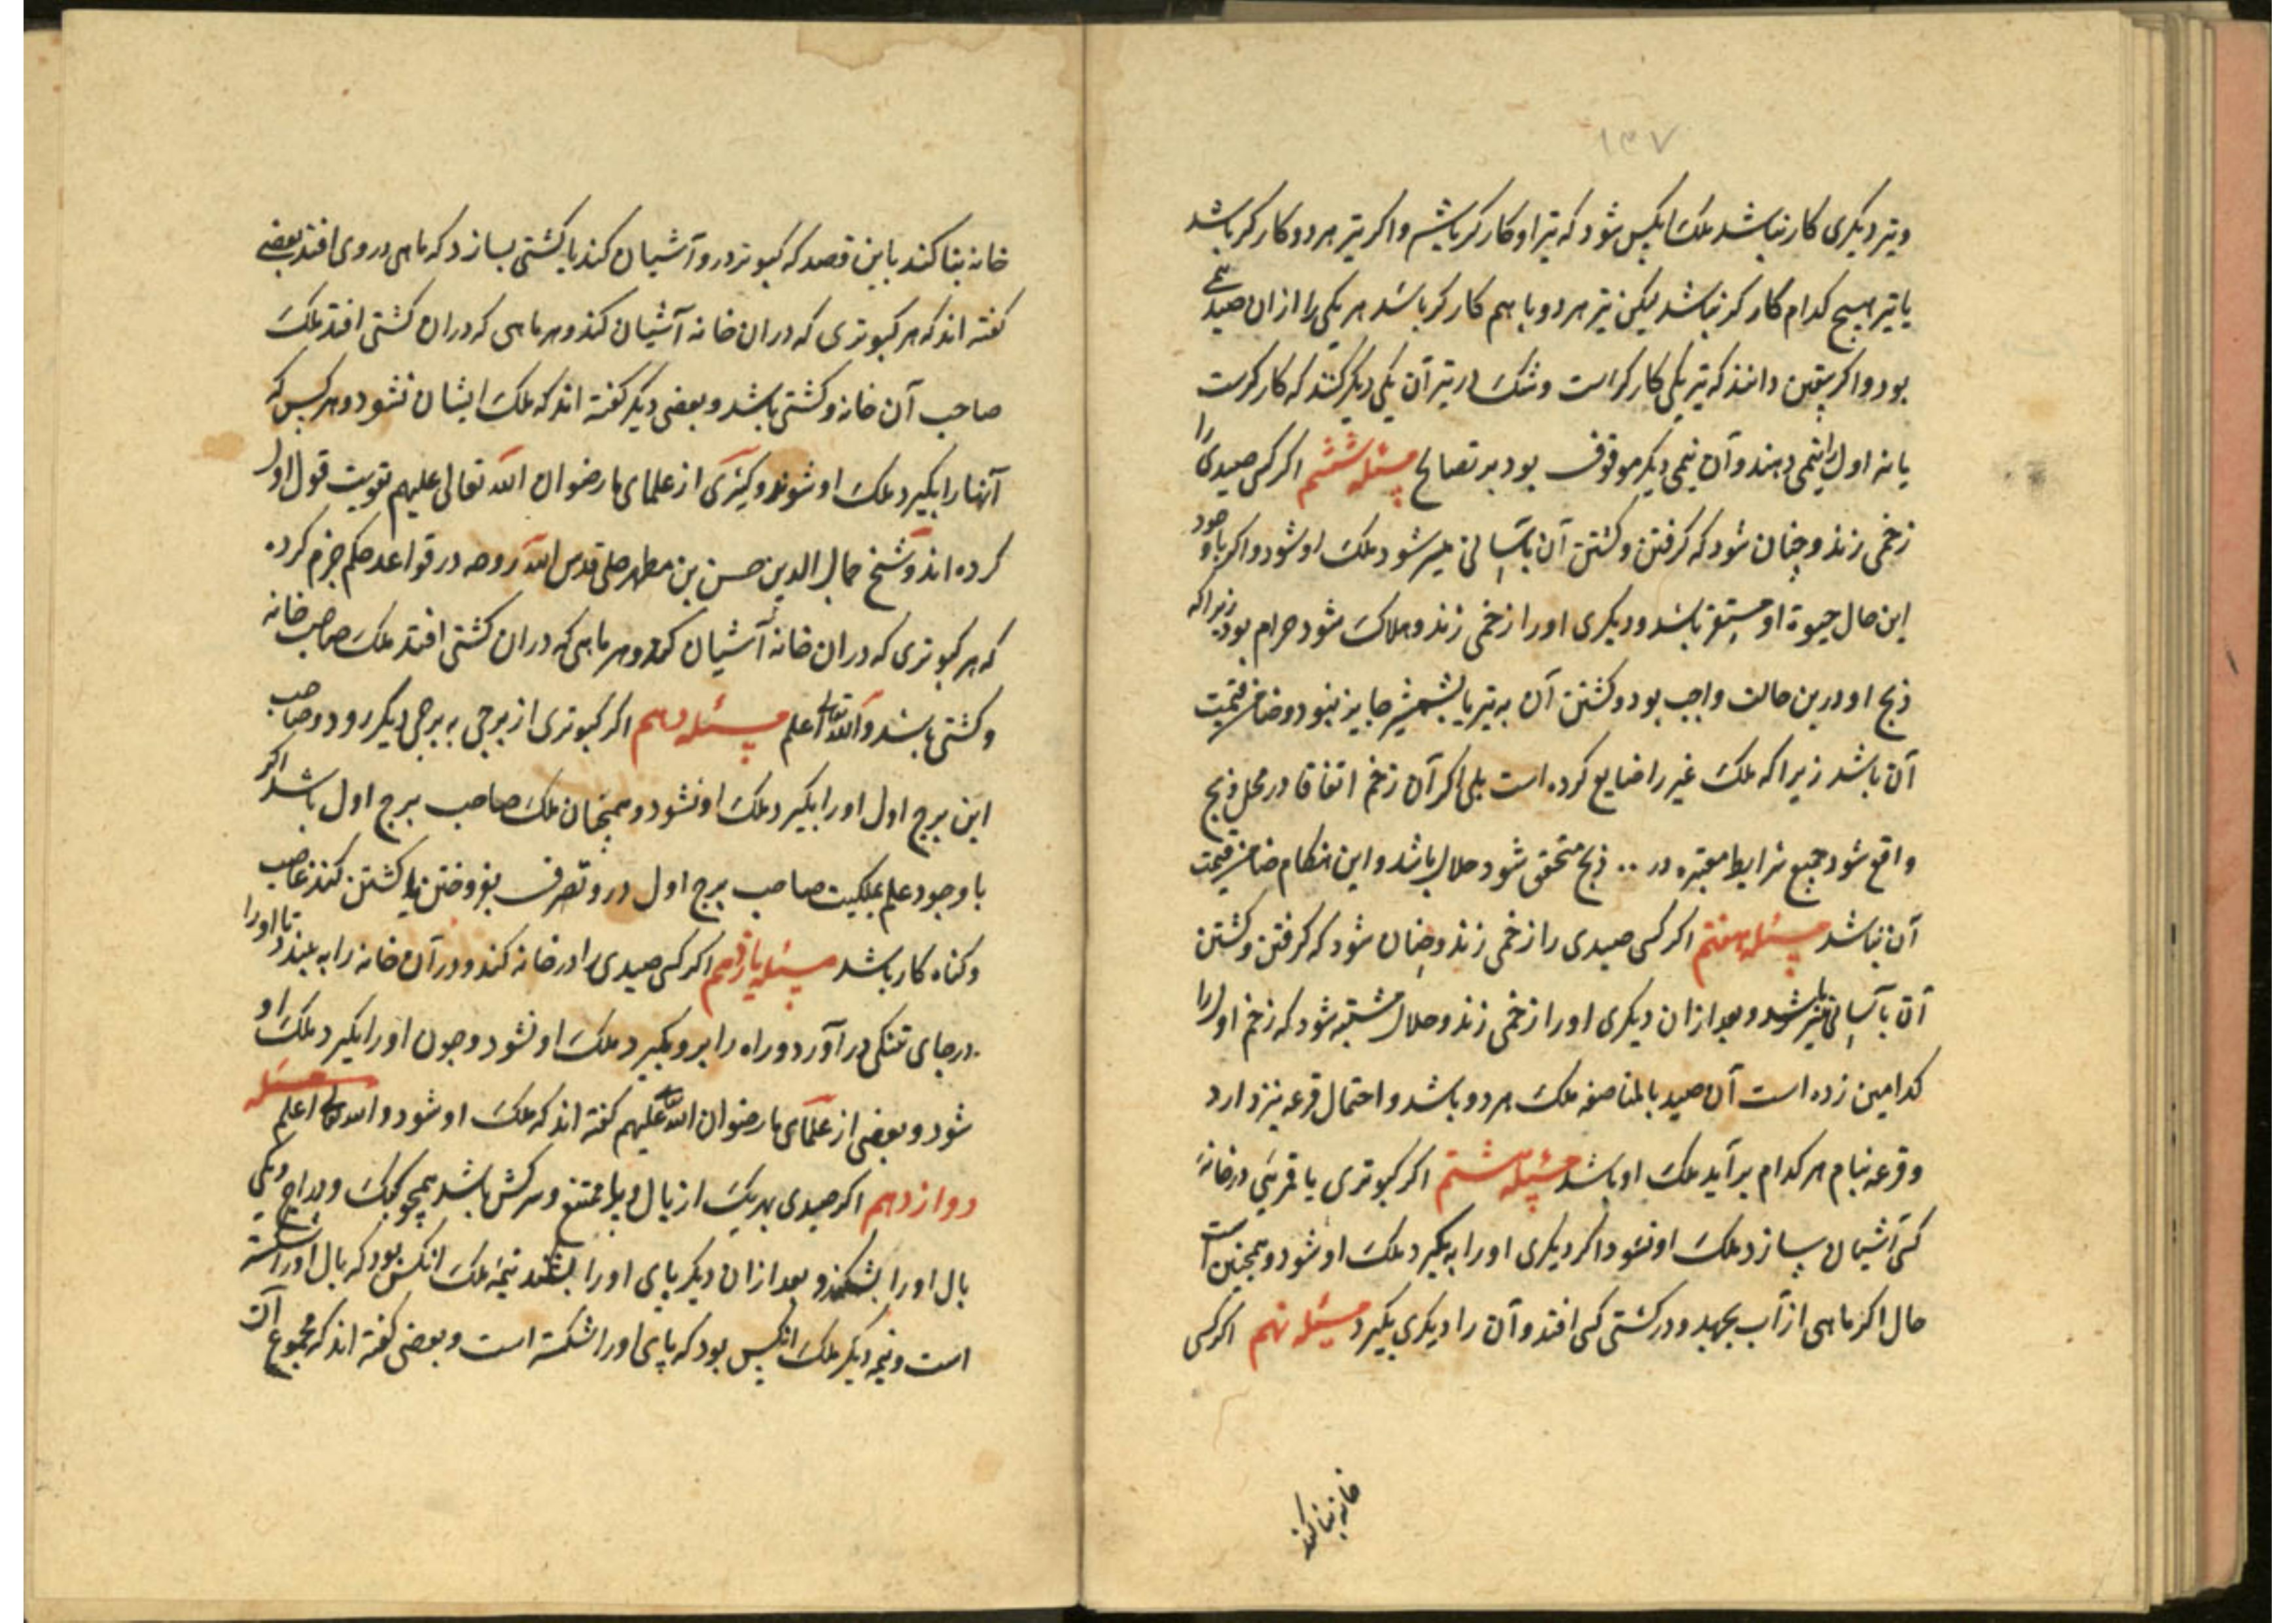 ۱۳۷
وتیر دیکری کار نباشد ملک آنکس شود که تیر او کارکر باشد واکر تیر هر دو کارکر باشد
یا تیر هیچ کدام کارکر نباشد لیکن تیر هر دو با هم کارکر باشد هر یکی را از ان صید
بود واکر بیقین دانند که تیر یکی کارکر است وشک در تیر آن یکی دیکر کنند که کارکرست
یا نه اول را نیمی دهند وآن نیمی دیکر موقوف بود بر تصالح مسئله ششم اکر کسی صیدی را
زخمی زند وچنان شود که کرفتن وکشتن آن بآسانی میسر شود ملک او شود واکر با وجود
این حال حیوة او مستقر باشد ودیکری او را زخمی زند وهلاک شود حرام بود زیرا که
ذبح او درین حالت واجب بود وکشتن آن به تیر یا بشمشیر جایز نبود وضامن قیمت
آن باشد زیرا که ملک غیر را ضایع کرده است بلی اکر آن زخم اتفاقا در محل ذبح
واقع شود جمیع شرایط معتبره در ذبح متحقق شود حلال باشد واین هنکام ضامن قیمت
آن نباشد مسئله هفتم اکر کسی صیدی را زخمی زند وچنان شود که کرفتن وکشتن
آن بآسانی میسر باشد وبعد از ان دیکری او را زخمی زند وحلال مشتبه شود که زخم اول را
کدامین زده است آن صید بالمناصفه ملک هر دو باشد واحتمال قرعه نیز دارد
وقرعه بنام هر کدام برآید ملک او باشد مسئله هشتم اکر کبوتری یا قمریی در خانهٔ
کسی آشیان بسازد ملک او نشود اکر دیکری او را بکیرد ملک او شود وهمچنین است
حال اکر ماهی از آب بجهد ودر کشتی کسی افتد وآن را دیکری بکیرد مسئله نهم اکر کسی
خانه بنا کند
خانه بنا کند باین قصد که کبوتر درو آشیان کند یا کشتی بسازد که ماهی در وی افتد بعضی
کفته اند که هر کبوتری که دران خانه آشیان کند وهر ماهی که دران کشتی افتد ملک
صاحب آن خانه وکشتی باشد وبعضی دیکر کفته اند که ملک ایشان نشود وهر کس که
آنها را بکیرد ملک او شوند وکثیری از علمای ما رضوان الله تعالی علیهم تقویت قول اول
کرده اند وشیخ جمال الدین حسن بن مطهر حلی قدس الله روحه در قواعد حکم جزم کرده
که هر کبوتری که دران خانه آشیان کند وهر ماهی که دران کشتی افتد ملک صاحب خانه
وکشتی باشد والله تعالی اعلم مسئله دهم اکر کبوتری از برجی به برجی دیکر رود وصاحب
این برج اول او را بکیرد ملک او نشود وهمچنان ملک صاحب برج اول باشد اکر
باوجود علم بملکیت صاحب برج اول درو تصرف بفروختن یا کشتن کند غاصب
وکناه کار باشد مسئله یازدهم اکر کسی صیدی را در خانه کند ودر آن خانه را به بندد تا او را
در جای تنکی درآورد وراه را برو بکیرد ملک او نشود وچون او را بکیرد ملک او
شود وبعضی از علمای ما رضوان الله علیهم کفته اند که ملک او شود والله تعالی اعلم مسئله
دوازدهم اکر صیدی بهر یک از بال وپا ممتنع وسرکش باشد همچو کبک ودراج ویکی
بال او را بشکند وبعد از ان دیکر پای او را بشکند نیمه ملک انکس بود که بال او را شکسته
است ونیمه دیکر ملک انکس بود که پای او را شکسته است وبعضی کفته اند که مجموع آن